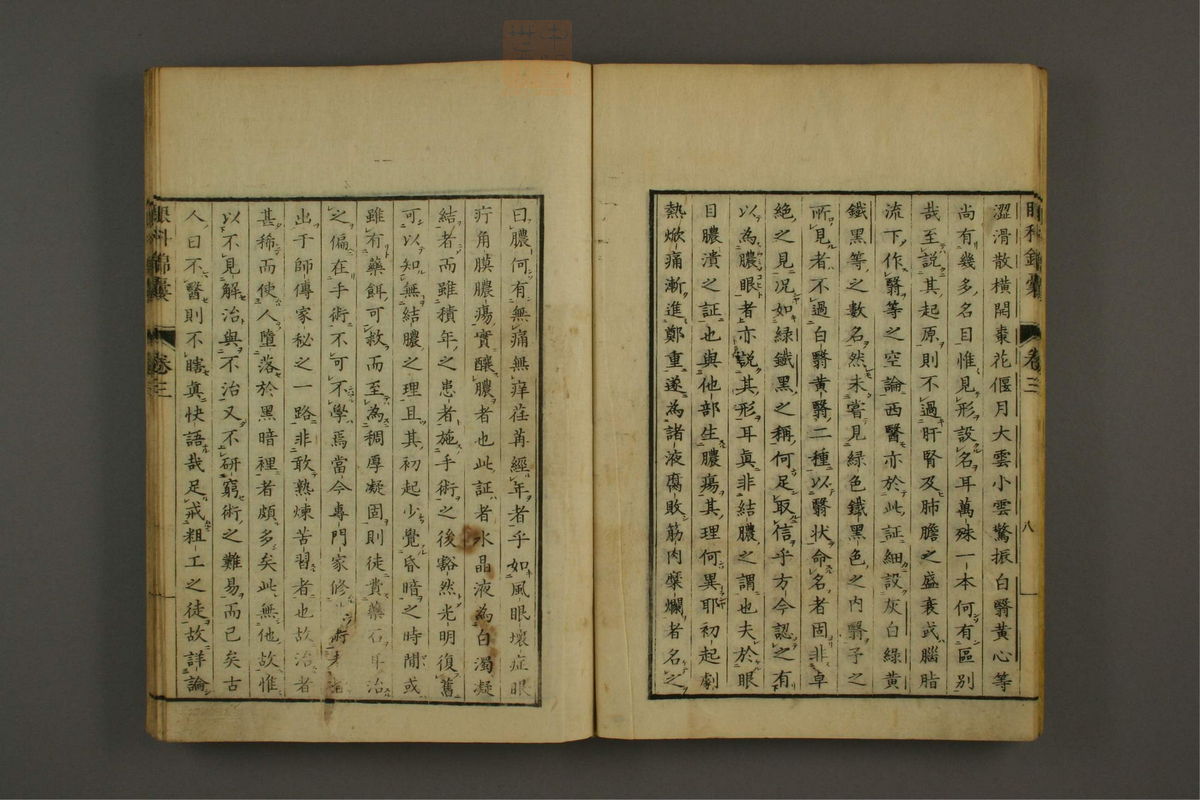 眼科錦囊 卷三 八
澀滑散橫開棗花偃月大雲小雲驚振白翳黃心等
尚有幾多名目惟見形設名耳萬殊一本何有區別
哉至說其起原則不過肝腎及肺膽之盛衰或腦脂
流下作翳等之空論西醫亦於此証細設灰白綠黃
鐵黑等之數名然未嘗見綠色鐵黑色之內翳子之
所見者不過白翳黃翳二種以翳狀命名者固非卓
絕之見況如綠鐵黑之稱何足取信乎方今認之有
以為膿眼者亦說其形耳眞非結膿之謂也夫於眼
目膿潰之証也與他部生膿瘍其理何異耶初起劇
熱焮痛漸進鄭重遂為諸液腐敗筋肉糜爛者名之
曰膿何有無痛無痒荏苒經年者乎如風眼壞症眼
疔角膜膿瘍實釀膿者也此証者水晶液為白濁凝
結者而雖積年之患者施手術之後豁然光明復舊
可以知無結膿之理且其初起少覺昏暗之時間或
雖有藥餌可救而至為稠厚凝固則徒費藥石耳治
之偏在手術不可不學焉當今專門家修
出于師傳家秘之一路非敢熟煉苦習者也故治者
甚稀而使人墮落於黑暗裡者頗多矣此無他故惟
以不見解治與不治又不研窮術之難易而已矣古
人曰不醫則不瞎眞快語哉足戒粗工之徒故詳論
眼科錦囊 卷三